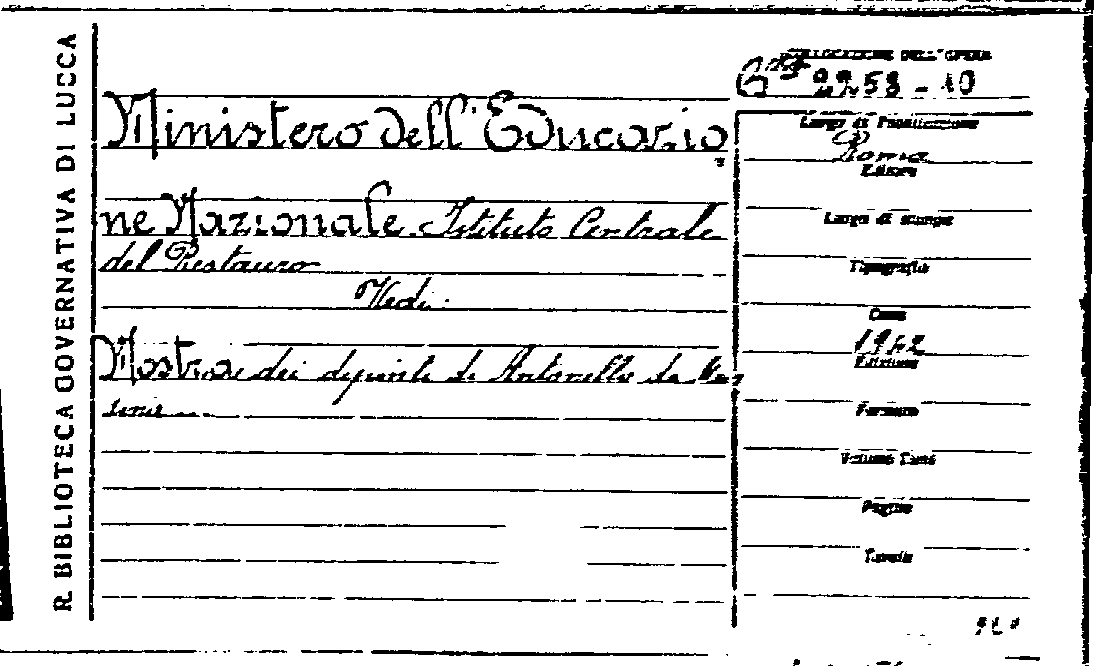 R. BIBLIOTECA GOVERNATIVA DI LUCCA
COLLOCAZIONE DELL'OPERA
Ministero dell'Educazio
ne Nazionale Istituto Centrale
del Restauro
Vedi:
Mostra dei dipinti di Antonello da Mes
sina
Luogo di Pubblicazione
Roma
Editore
Luogo di stampa
Tipografia
Data
1942
Edizione
Formato
Volume Tomo
Pagine
Tavole